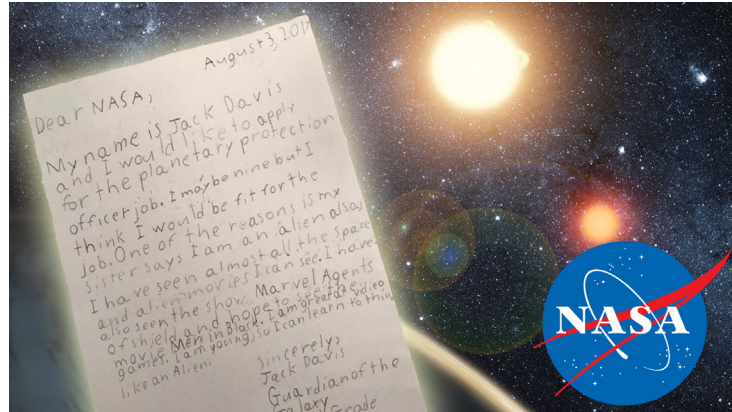 August 3, 2017
Dear NASA,
My name is Jack Davis
and I would like to apply
for the planetary protection
officer job. I may be nine but I
think I would be fit for the
job. One of the reasons is my
sister says I am an alien also,
I have seen almost all the space
and alien movies I can see. I have
also seen the show Marvel Agents
of shield and hope to see the
movie Men in Black. I am great at video
games. I am young, so I can learn to think
like an Alien.
Sincerely,
Jack Davis
Guardian of the
Galaxy
Grade
NASA